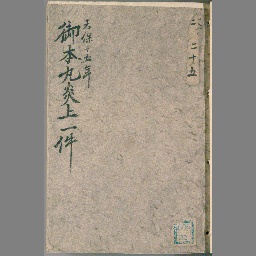 天保十五年
御本丸炎上一件
二十五